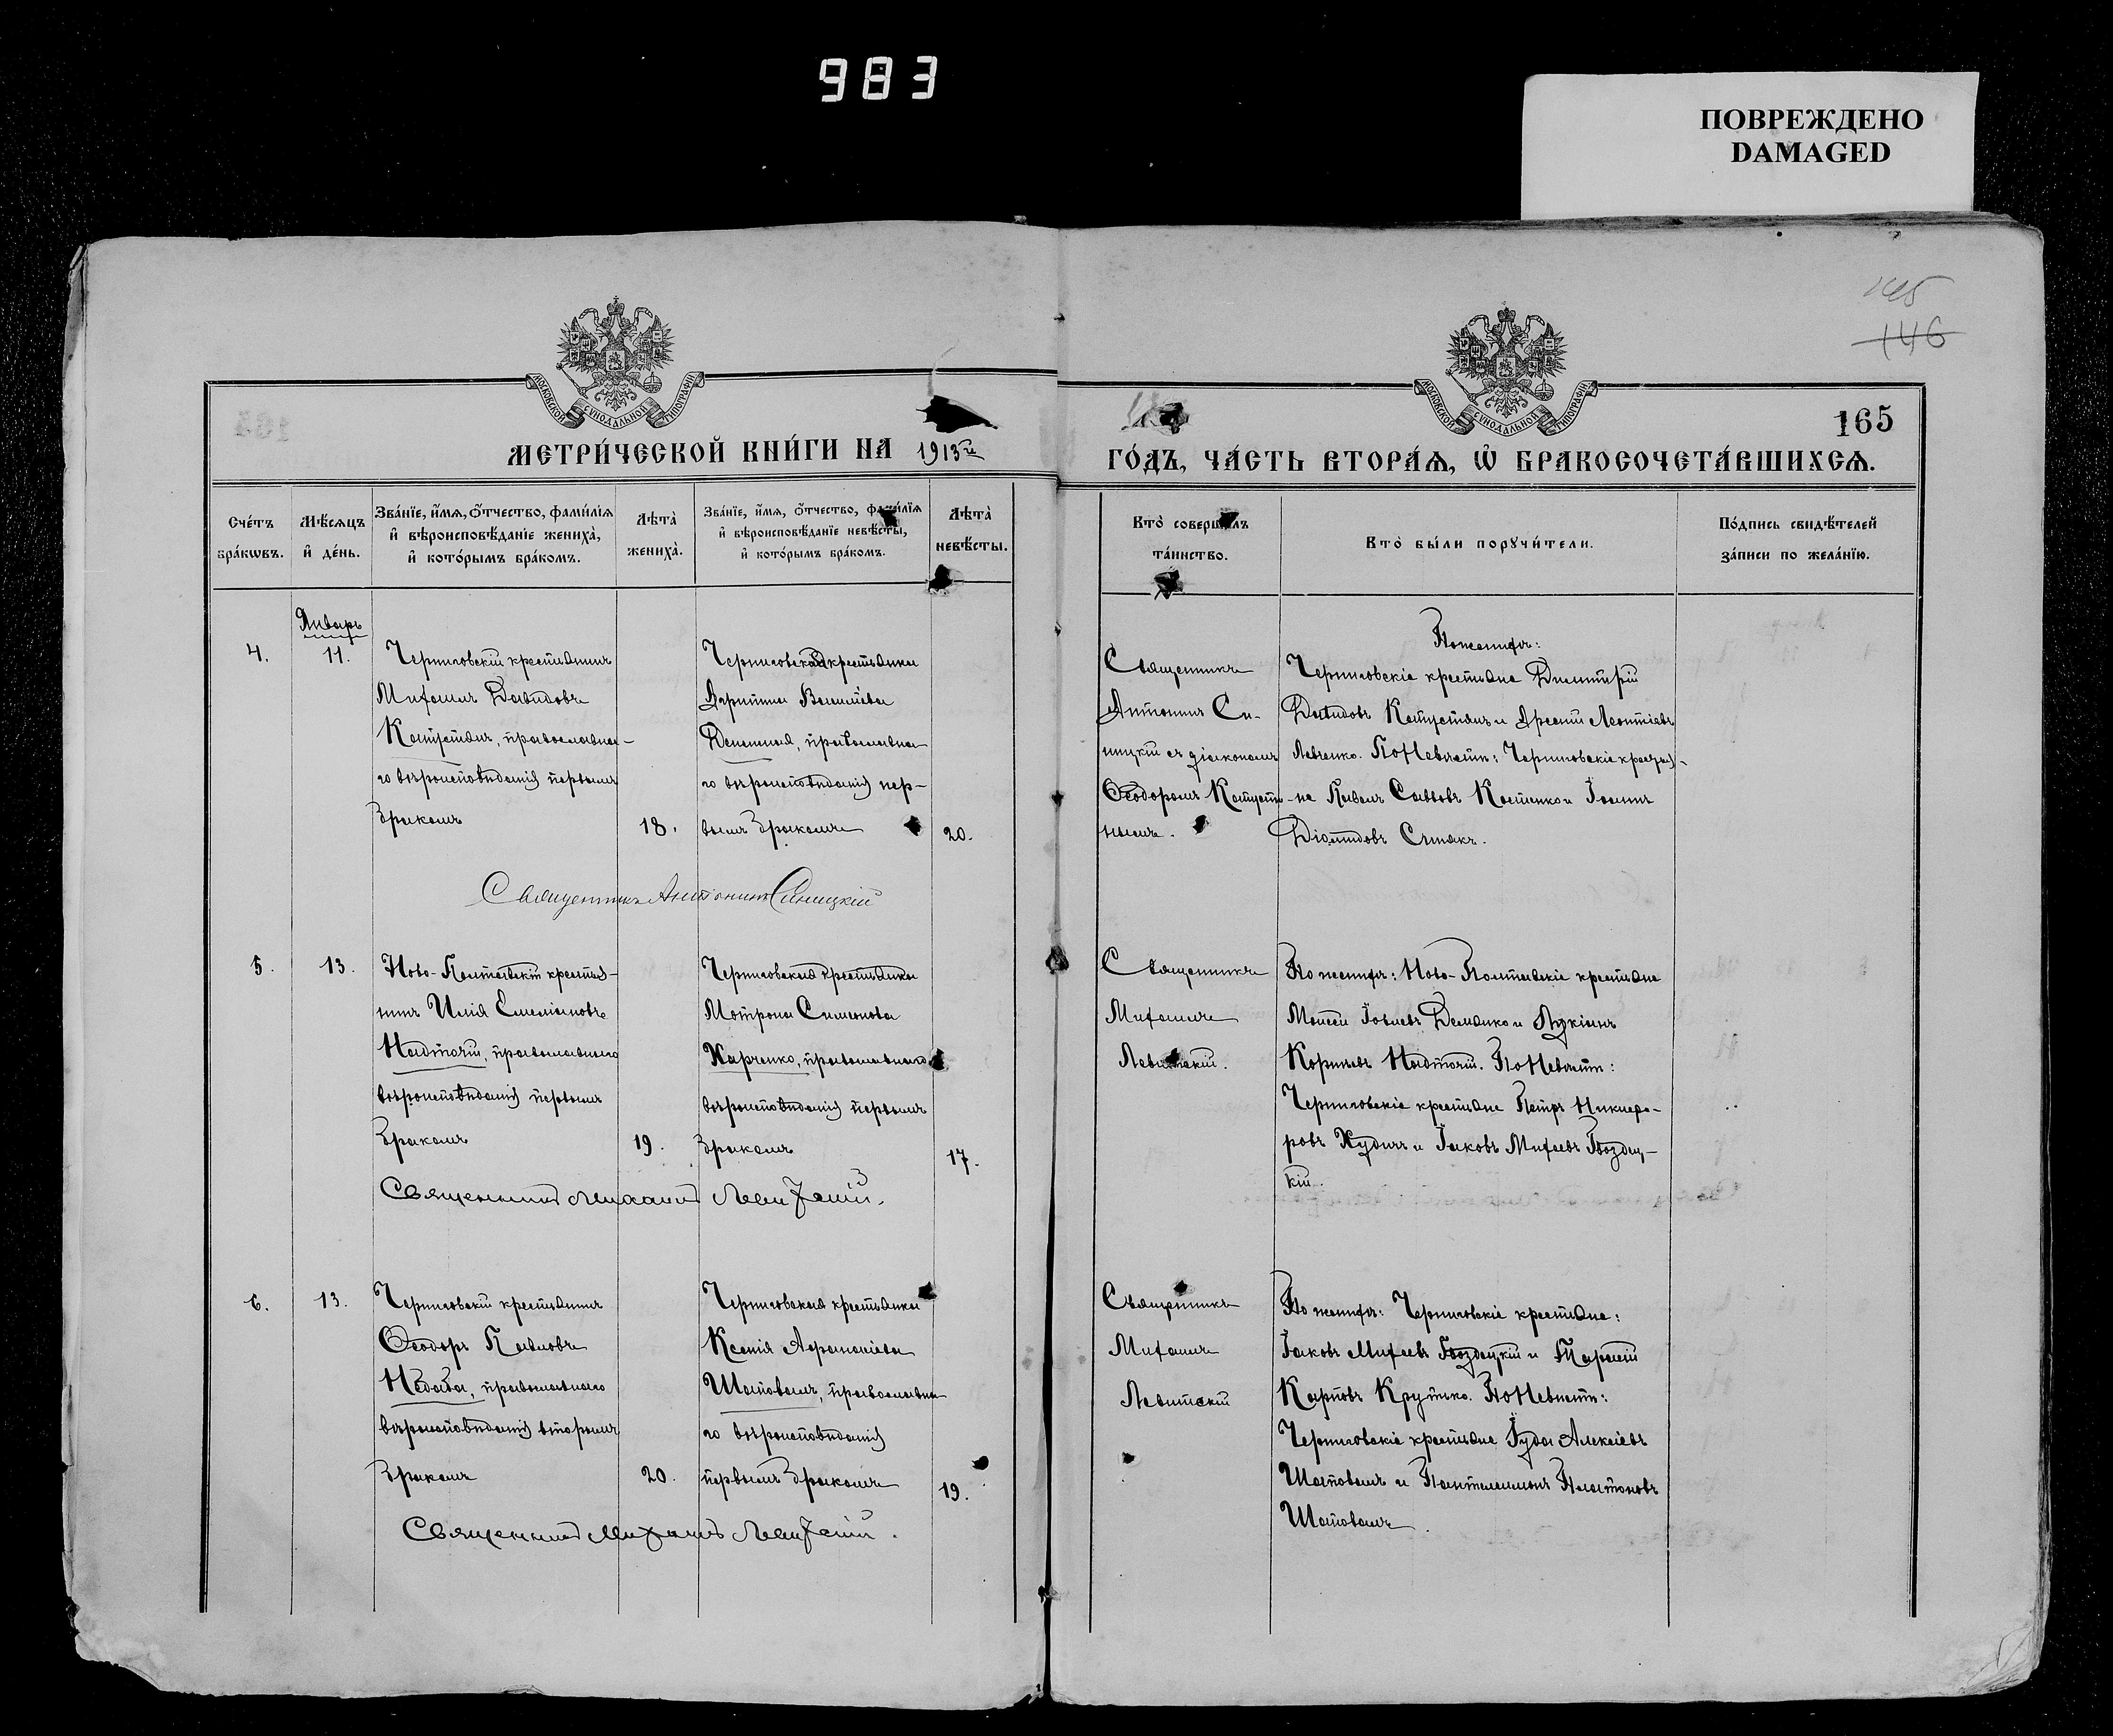 983
ПОВРЕЖДЕНО
DAMAGED
146
165
МОСКОВСКОЙ СУНОДАЛЬНОЙ ТИПОГРАФІИ
МОСКОВСКОЙ СУНОДАЛЬНОЙ ТИПОГРАФІИ
МЕТРИ́ЧЕСКОЙ КНИ́ГИ НА 1913й
ГО́ДЪ, ЧА́СТЬ ВТОРА́Ѧ, Ѡ҆ БРАКОСОЧЕТА́ВШИХСѦ.
Сче́тъ бра́кѡвъ.
Мѣ́сяцъ и҆ де́нь.
Зва́нїе, и҆́мя, ѻ҆́тчество, фами́лїя
и҆ вѣроисповѣ́данїе жениха̀,
и҆ кото́рымъ бра́комъ.
Лѣта̀ жениха̀.
Зва́нїе, и҆́мя, ѻ҆́тчество, фами́лїя
и҆ вѣроисповѣ́данїе невѣ́сты,
и҆ кото́рымъ бра́комъ.
Лѣта̀ невѣ́сты.
Кто̀ соверши́лъ
та́инство.
Кто̀ бы́ли порꙋчи́тели.
По́дпись свидѣ́телей
за́писи по жела́нїю.
Январь
4.
11.
Черниговскій крестьянинъ
Михаилъ Давидовъ
Капустянъ, православна-
го вѣроисповѣданія первымъ
бракомъ
18.
Черниговская крестьянка
Василіева
православна-
го вѣроисповѣданія пер-
вымъ бракомъ
20.
Священникъ
Антонинъ Си-
ницкій съ діакономъ
Ѳеодоромъ Капустя-
нымъ.
По женихѣ:
Черниговскіе крестьяне Димитрій
Давидовъ Капустянъ и Арсеній Леонтіевъ
Левченко. По Невѣстѣ: Черниговскіе крестья-
не Павелъ Саввовъ Костенко и Іоаннъ
Діомидовъ Сѣмакъ.
Священникъ Антонинъ Синицкій
5.
13.
Ново-Полтавскій крестья-
нинъ Илія Емеліановъ
Надточій, православнаго
вѣроисповѣданія первымъ
бракомъ
19.
Черниговская крестьянка
Мотрона Симеонова
Харченко, православнаго
вѣроисповѣданія первымъ
бракомъ
17.
Священникъ
Михаилъ
Левитскій.
По женихѣ: Ново-Полтавскіе крестьяне
Моисей Іовлевъ Демянко и Лукіанъ
Корніевъ Надточій. По Невѣстѣ:
Черниговскіе крестьяне Петръ Никифо-
ровъ Кудичъ и Іаковъ Михеевъ Гвоздец-
кій.
Священникъ Михаилъ Левитскій.
6.
13.
Черниговскій крестьянинъ
Ѳеодоръ Павловъ
Недаба, православнаго
вѣроисповѣданія вторымъ
бракомъ
20.
Черниговская крестьянка
Ксенія Аѳанасіева
Шаповалъ, православна-
го вѣроисповѣданія
первымъ бракомъ
19.
Священникъ
Михаилъ
Левитскій
По женихѣ: Черниговскіе крестьяне:
Іаковъ Михеевъ Гвоздецкій и Тарасій
Карповъ Крутько. По Невѣстѣ:
Черниговскіе крестьяне Іуда Алексіевъ
Шаповалъ и Пантелеимонъ Платоновъ
Шаповалъ.
Священникъ Михаилъ Левитскій.